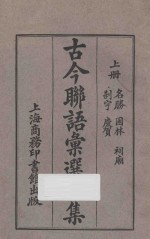 上册
名勝 園林 祠廟
刹宇 慶賀
古今聯語彙選
集
上海商務印書館出版